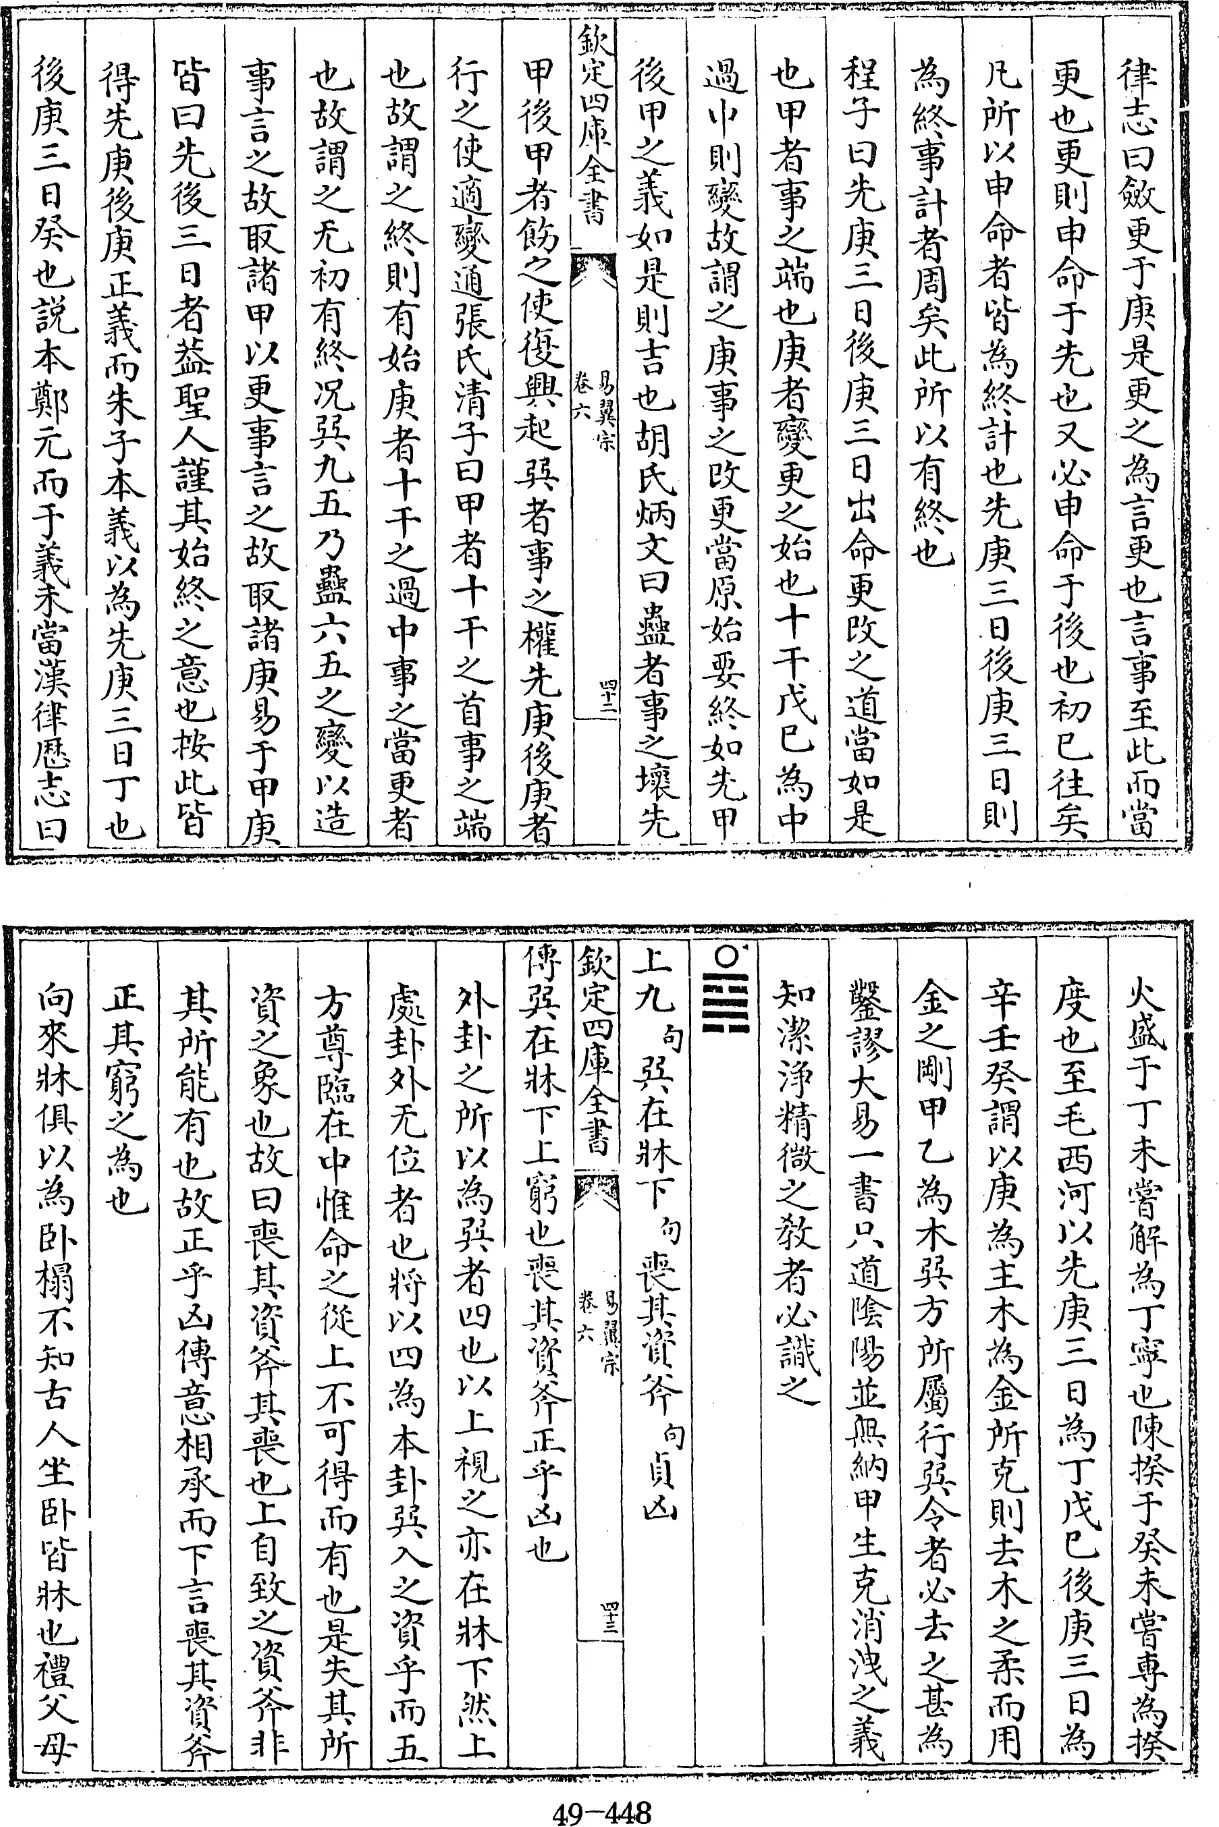 律志曰斂更于庚是更之為言更也言事至此而當
更也更則申命于先也又必申命于後也初已往矣
凡所以申命者皆為終計也先庚三日後庚三日則
為終事計者周矣此所以有終也
程子曰先庚三日後庚三日出命更改之道當如是
也甲者事之端也庚者變更之始也十干戊巳為中
過中則變故謂之庚事之改更當原始要終如先甲
後甲之義如是則吉也胡氏炳文曰蠱者事之壞先
欽定四庫全書
易翼宗
卷六
四十二
甲後甲者飭之使復興起巽者事之權先庚後庚者
行之使適變通張氏清子曰甲者十干之首事之端
也故謂之終則有始庚者十干之過中事之當更者
也故謂之无初有終况巽九五乃蠱六五之變以造
事言之故取諸甲以更事言之故取諸庚易于甲庚
皆曰先後三日者葢聖人謹其始終之意也按此皆
得先庚後庚正義而朱子本義以為先庚三日丁也
後庚三日癸也説本鄭元而于義未當漢律歷志曰
火盛于丁未嘗解為丁寧也陳揆于癸未嘗專為揆
度也至毛西河以先庚三日為丁戊巳後庚三日為
辛壬癸謂以庚為主木為金所克則去木之柔而用
金之剛甲乙為木巽方所屬行巽令者必去之甚為
鑿謬大易一書只道陰陽並無納甲生克消洩之義
知潔浄精微之教者必識之
上九句巽在牀下句喪其資斧句貞凶
欽定四庫全書
易翼宗
卷六
四十三
傳巽在牀下上窮也喪其資斧正乎凶也
外卦之所以為巽者四也以上視之亦在牀下然上
處卦外无位者也將以四為本卦巽入之資乎而五
方尊臨在中惟命之從上不可得而有也是失其所
資之象也故曰喪其資斧其喪也上自致之資斧非
其所能有也故正乎凶傳意相承而下言喪其資斧
正其窮之為也
向來牀俱以為卧榻不知古人坐卧皆牀也禮父母
49-448